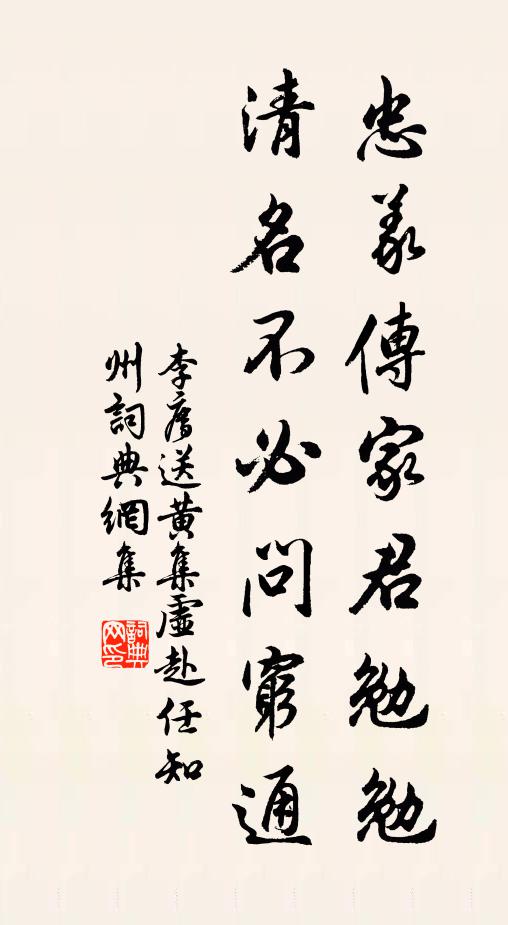 忠義傳家君勉勉
清名不必問窮通
李廌送黃集虛赴任知
州詞典網集
詞典網印